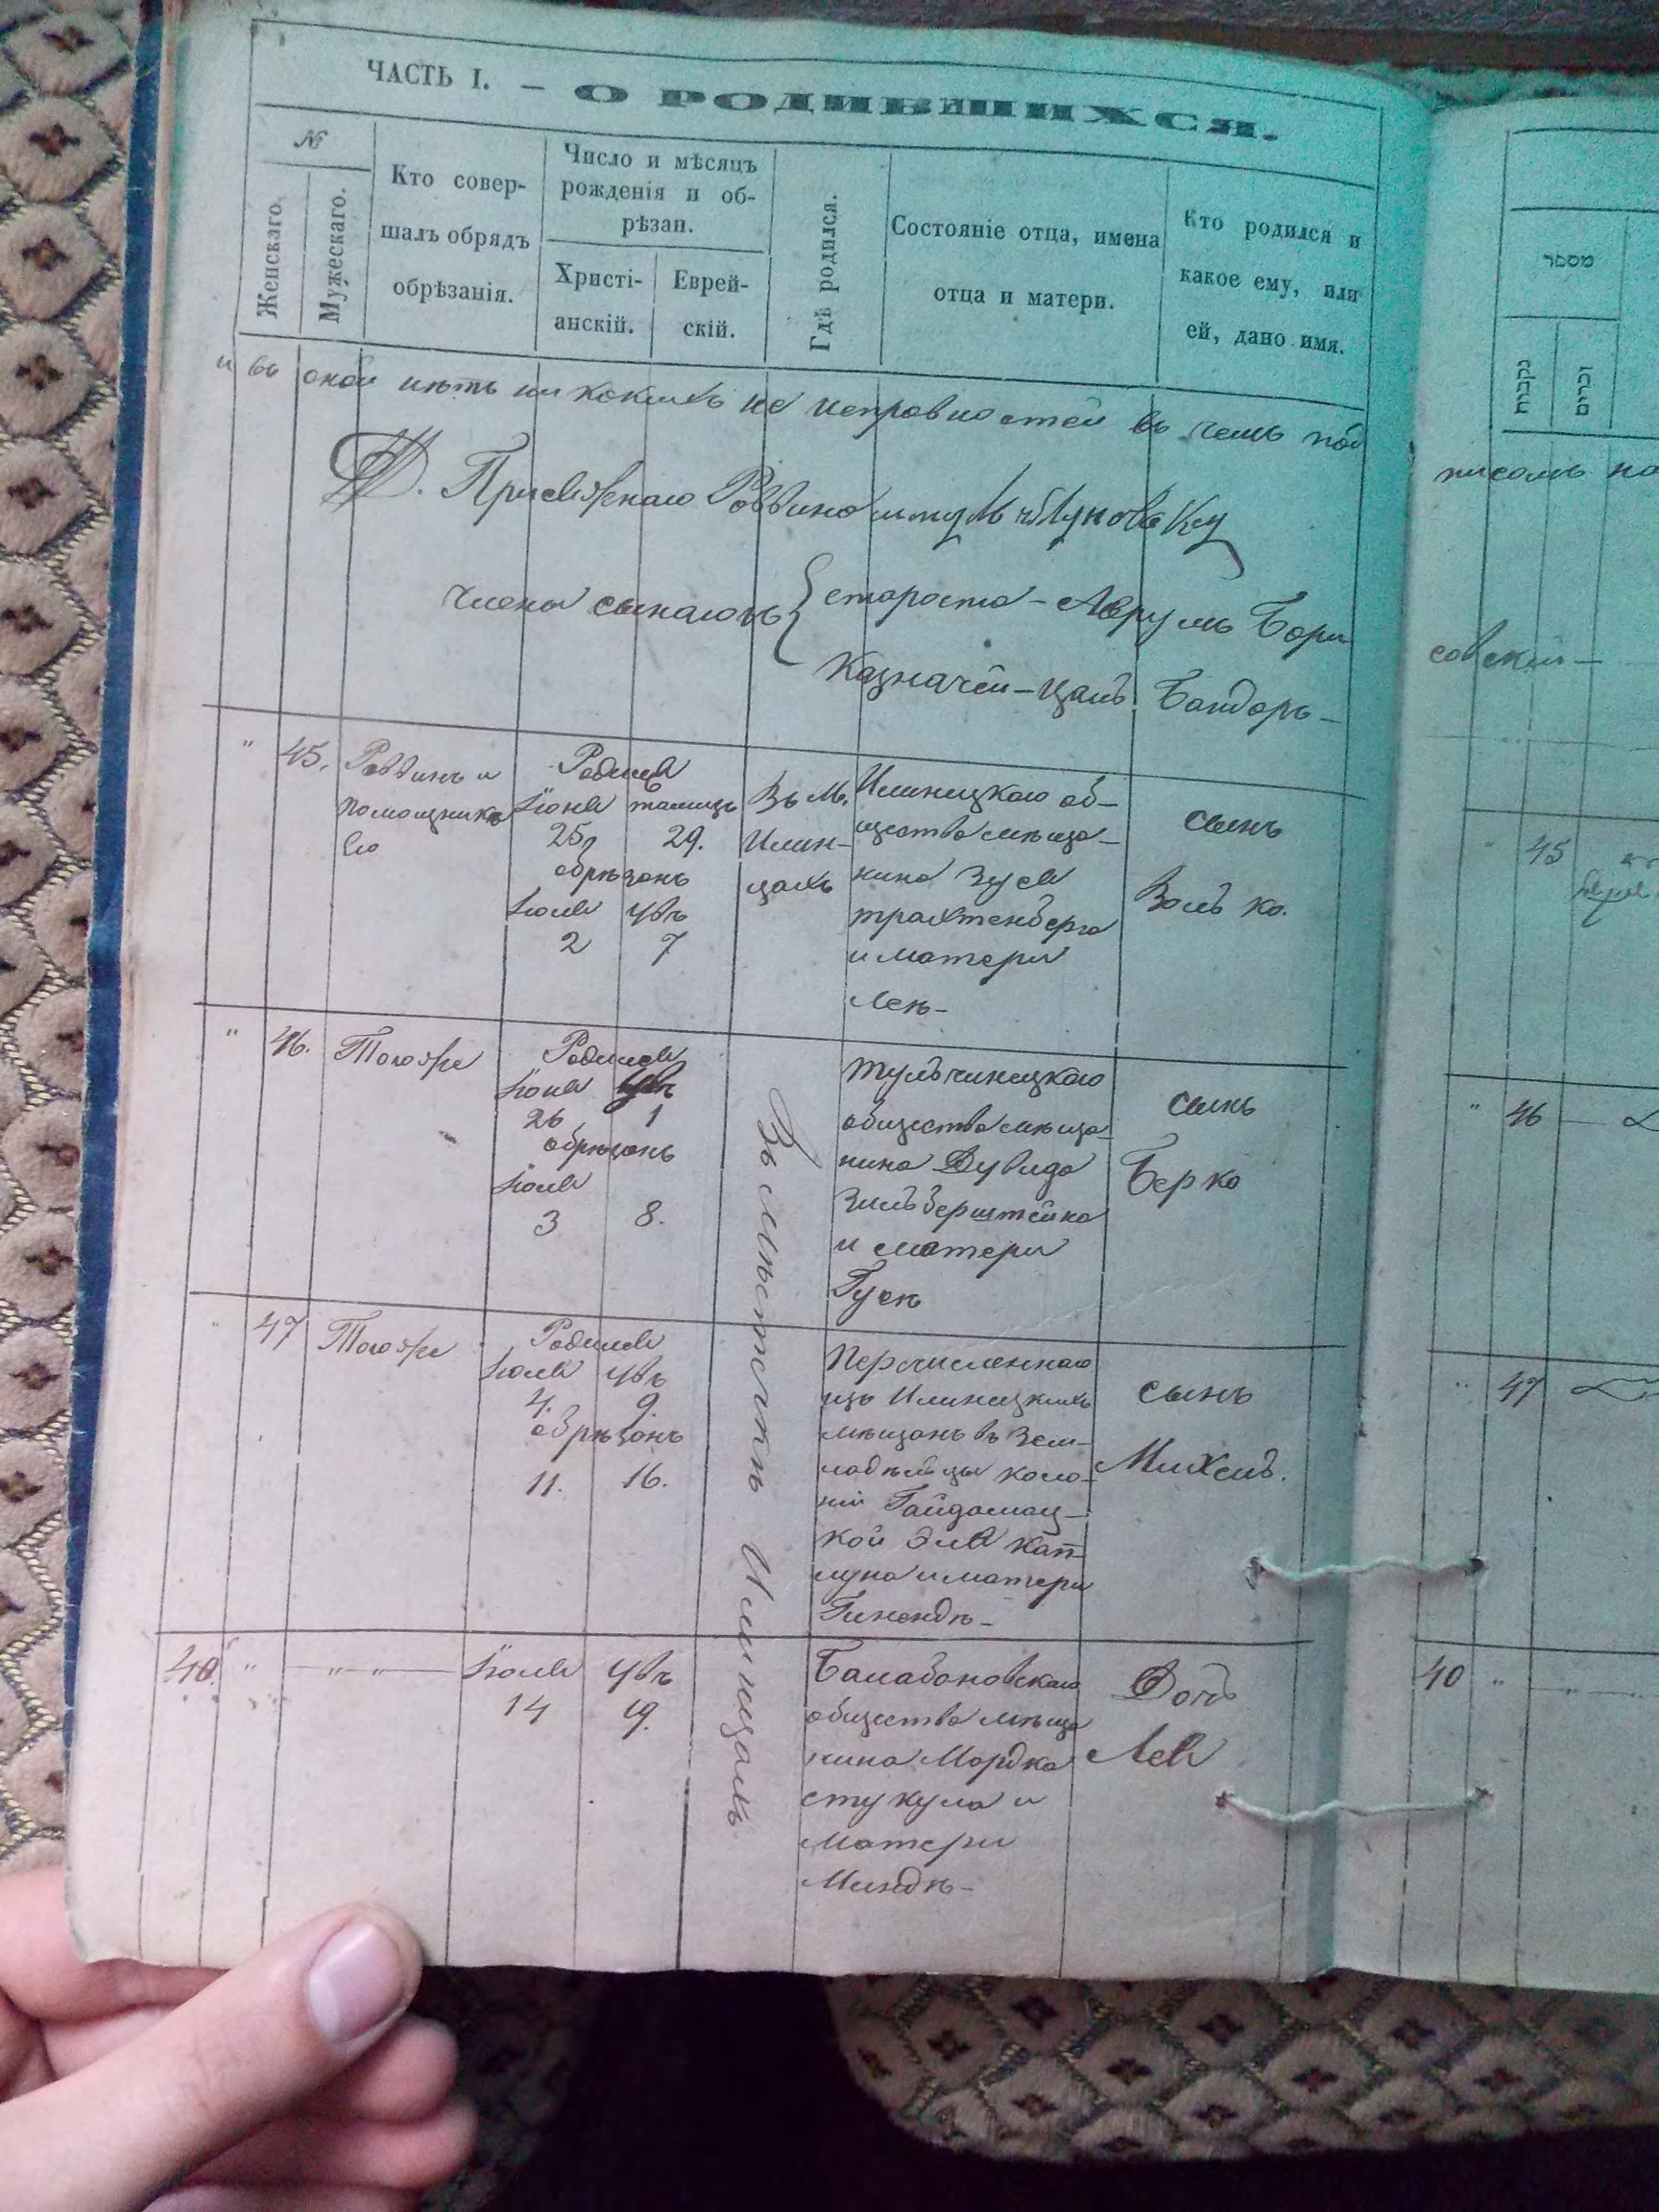 ЧАСТЬ I. — О РОДИВШИХСЯ.
№
Женскаго.
Мужескаго.
Кто совер-
шалъ обрядъ
обрѣзанія.
Число и мѣсяцъ
рожденія и об-
рѣзан.
Христі-
анскій.
Еврей-
скій.
Гдѣ родился.
Состояніе отца, имена
отца и матери.
Кто родился и
какое ему, или
ей, дано имя.
и въ оной нѣтъ ни какихъ не исправностей въ чемъ под
Присяжнаго Раввина
члены синагоги
староста - Аврумъ Бори
Казначей - Цаль Бондарь -
" 45.
Раввинъ и
помощникъ
его
Родился
Іюня
25
29.
обрѣзанъ
Іюля
2 7
Въ М.
Илин-
цахъ
Илинецкаго об-
щества мѣща-
нина Зуся
Трахтенберга
и матери
Леи -
сынъ
Волько.
" 46.
Тогоже
Родился
Іюня
26 1
обрѣзанъ
Іюля
3 8.
Въ мѣстечкѣ Илинцахъ
тульчинецкаго
общества мѣща-
нина Дувида
Зильберштейна
и матери
Гуси
сынъ
Берко
" 47
Тогоже
Родился
Іюля
4. 9.
обрѣзанъ
11. 16.
Перечисленнаго
изъ Илинецкихъ
мѣщанъ въ Зем-
ладѣльцы коло-
ніи Гайдамац-
кой Эля Кап-
луна и матери
Гинендѣ -
сынъ
Михель.
40. "
— " " —
Іюля
14 19.
Балабановскаго
общества мѣща
нина Мордка
стукула и
матери
Миндѣ -
Дочь
Лея
מספר
נקבות
זכרים
писомъ
совский —
" 45
" 46
" 47
40 "